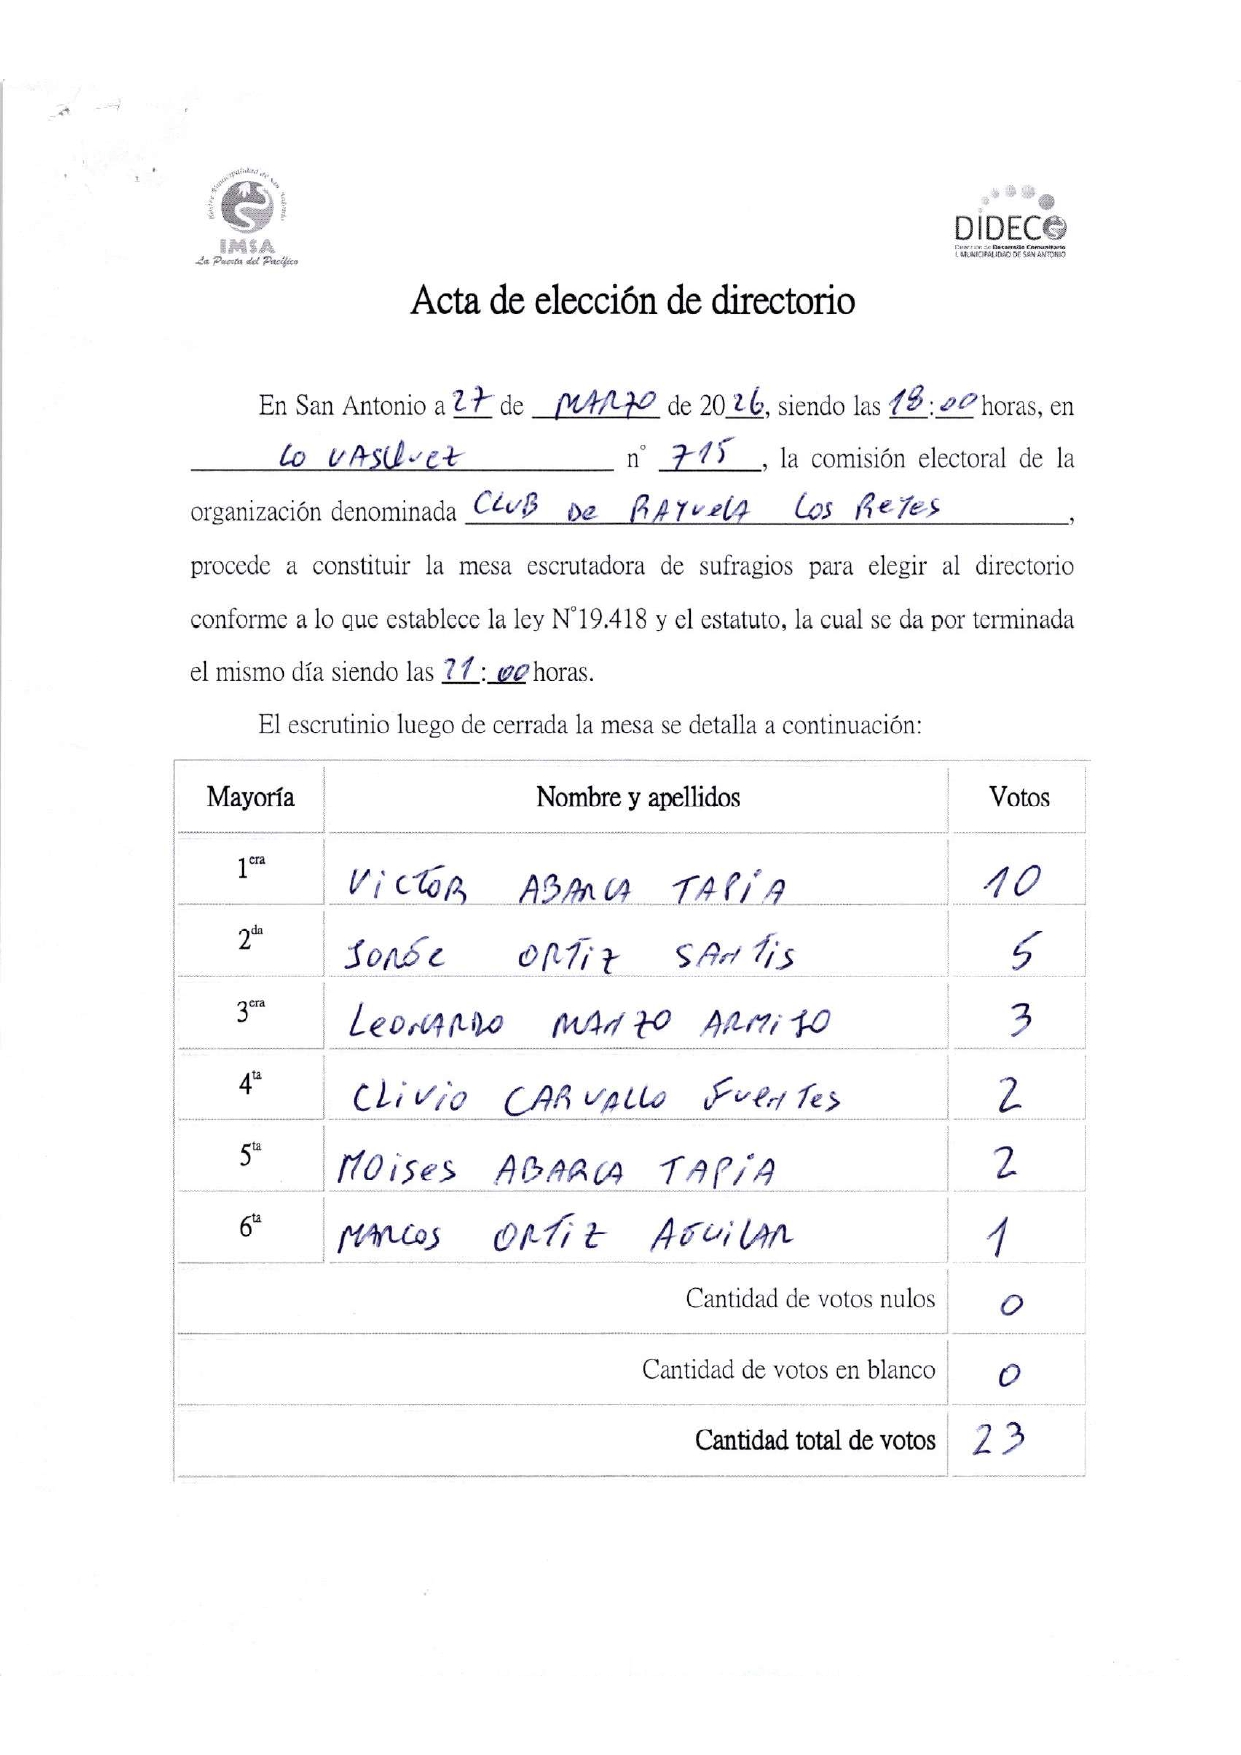 Ilustre Municipalidad de San Antonio
IMSA
La Puerta del Pacífico
DIDECO
Dirección de Desarrollo Comunitario
I. MUNICIPALIDAD DE SAN ANTONIO
Acta de elección de directorio
En San Antonio a 27 de MARZO de 2026, siendo las 18:00 horas, en
Lo VASQuez n° 715, la comisión electoral de la
organización denominada CLuB De RAYueLA Los ReYes,
procede a constituir la mesa escrutadora de sufragios para elegir al directorio
conforme a lo que establece la ley N°19.418 y el estatuto, la cual se da por terminada
el mismo día siendo las 21:00 horas.
El escrutinio luego de cerrada la mesa se detalla a continuación:
Mayoría Nombre y apellidos Votos
1era VicToR ABARCA TAPiA 10
2da JORGe ORTiz SANTis 5
3era LeoNARDO MANZO ARMiJO 3
4ta CLiVio CARVALLo FueNTes 2
5ta MOises ABARCA TAPiA 2
6ta MARCOS ORTiz AGUiLAR 1
Cantidad de votos nulos 0
Cantidad de votos en blanco 0
Cantidad total de votos 23